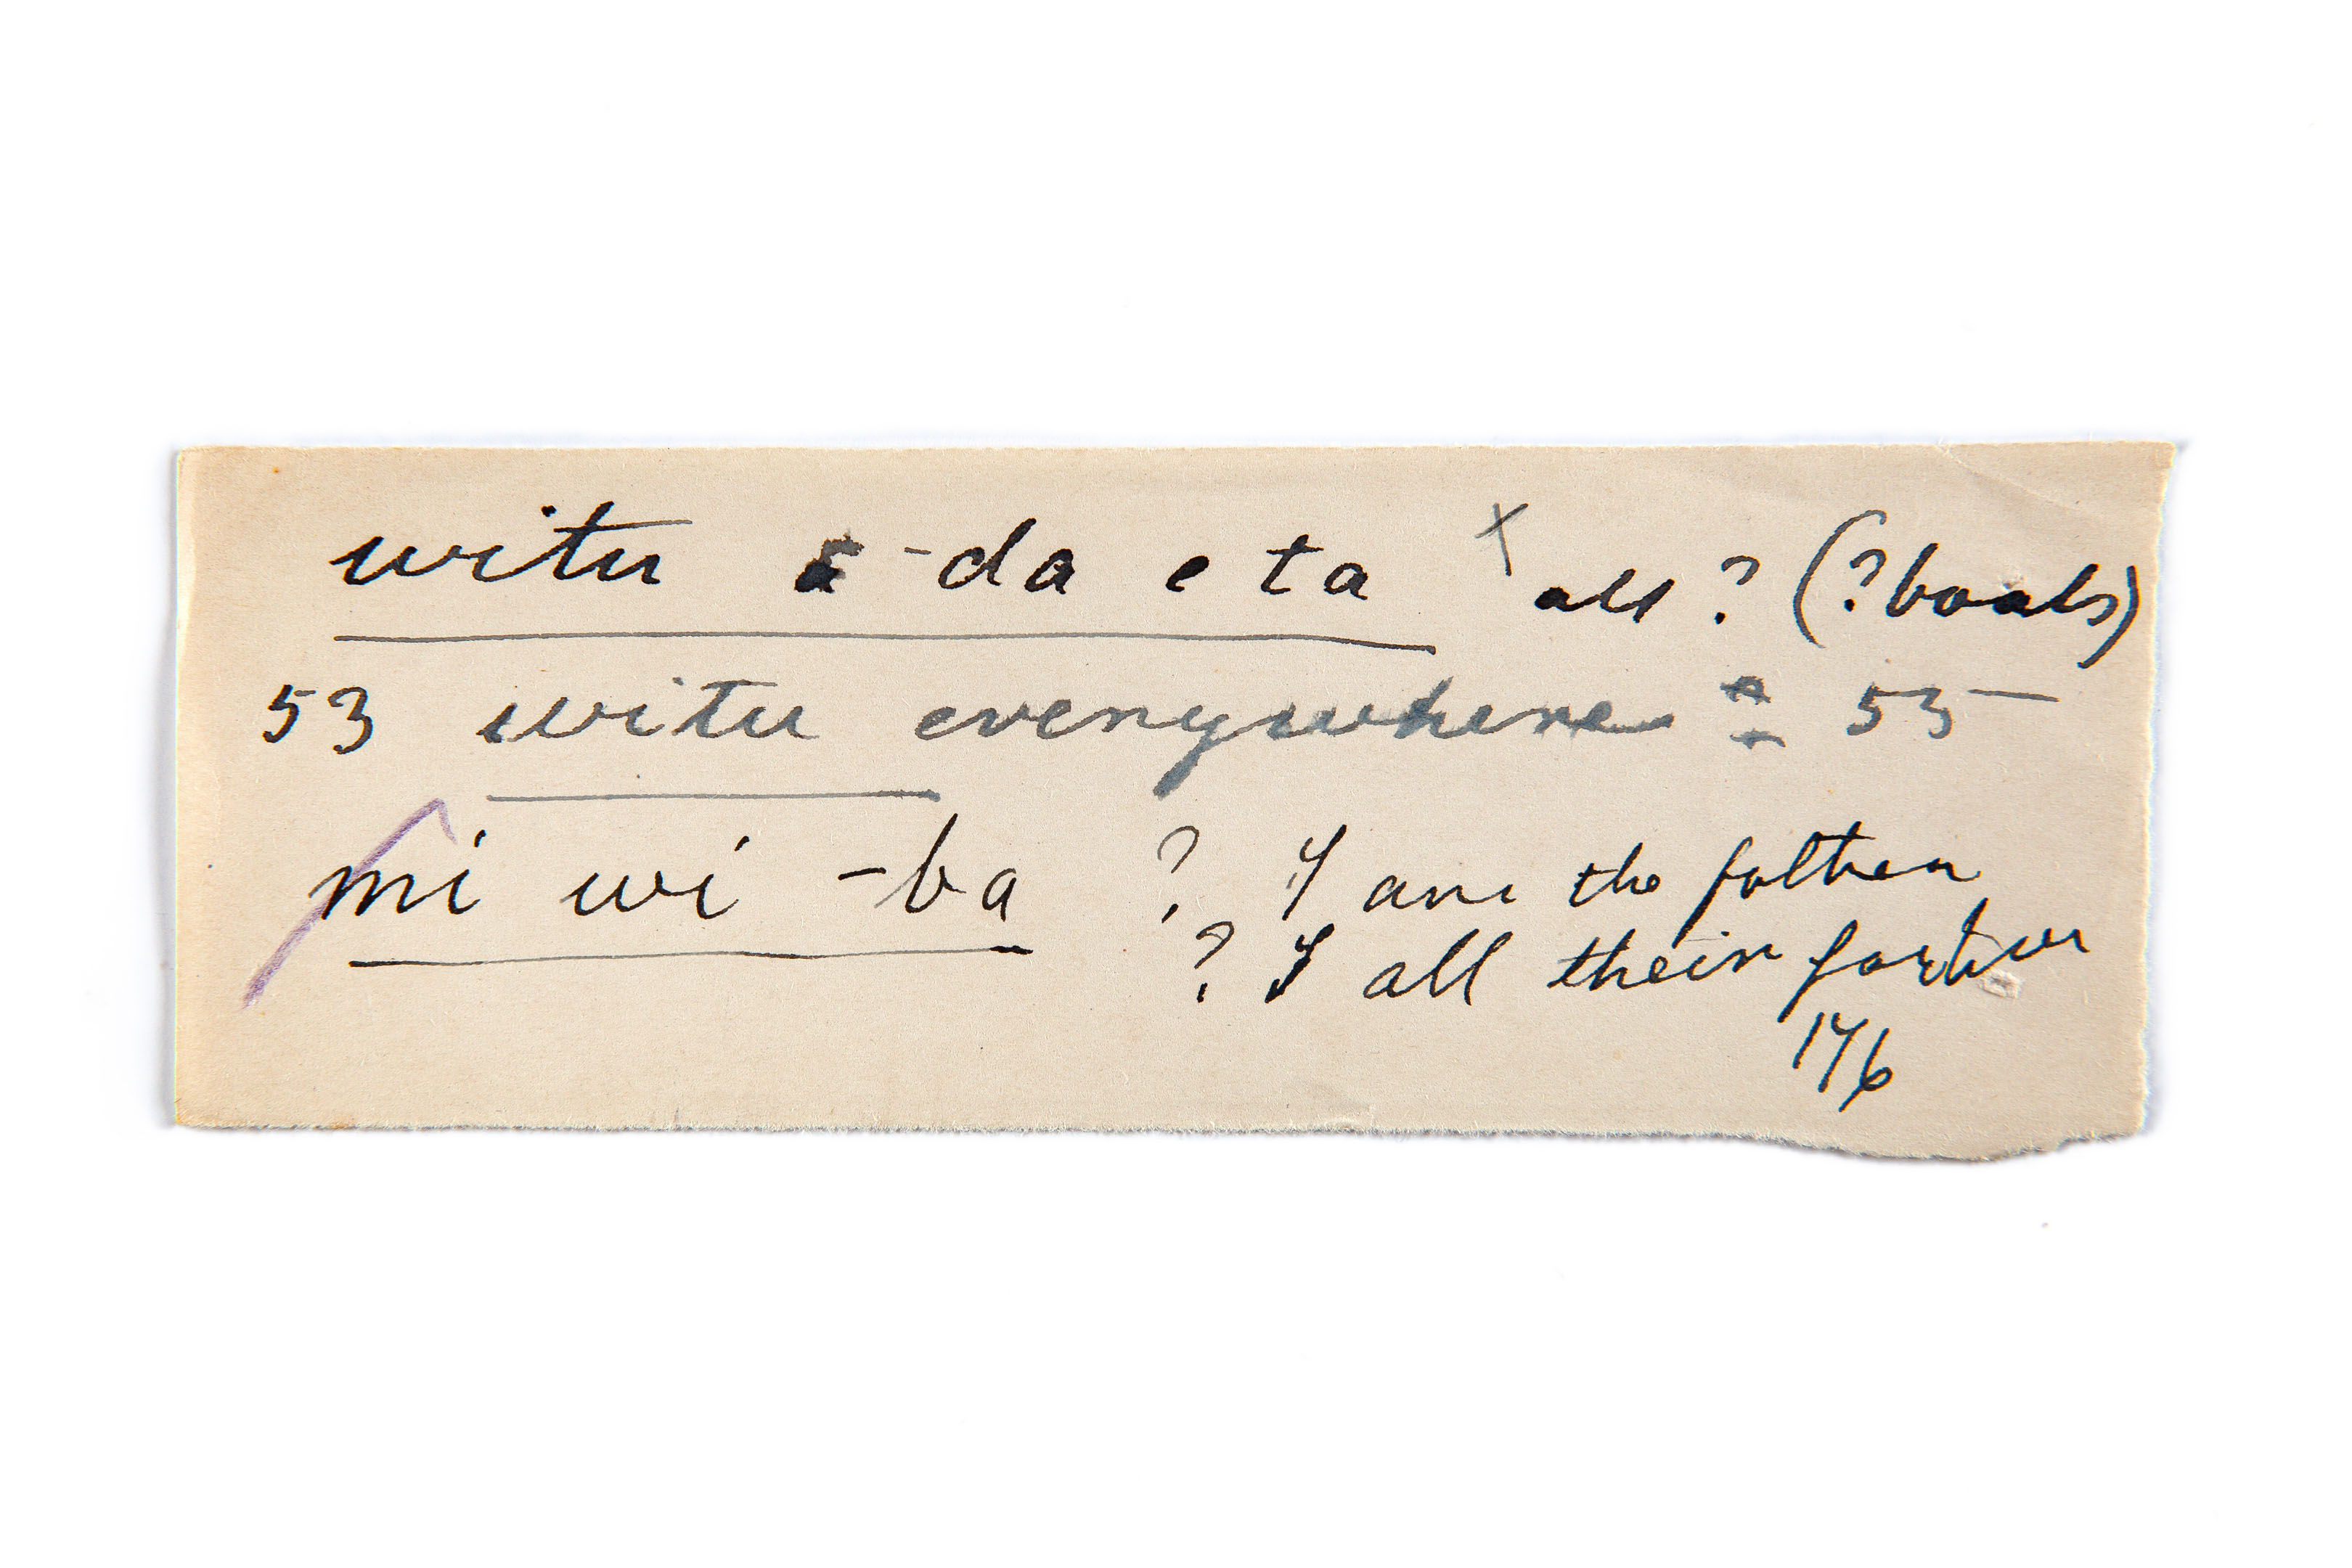 witu -da eta x all? (? boats)
53 witu everywhere 55
mi wi -ba ? I am the father
? I all their father
176